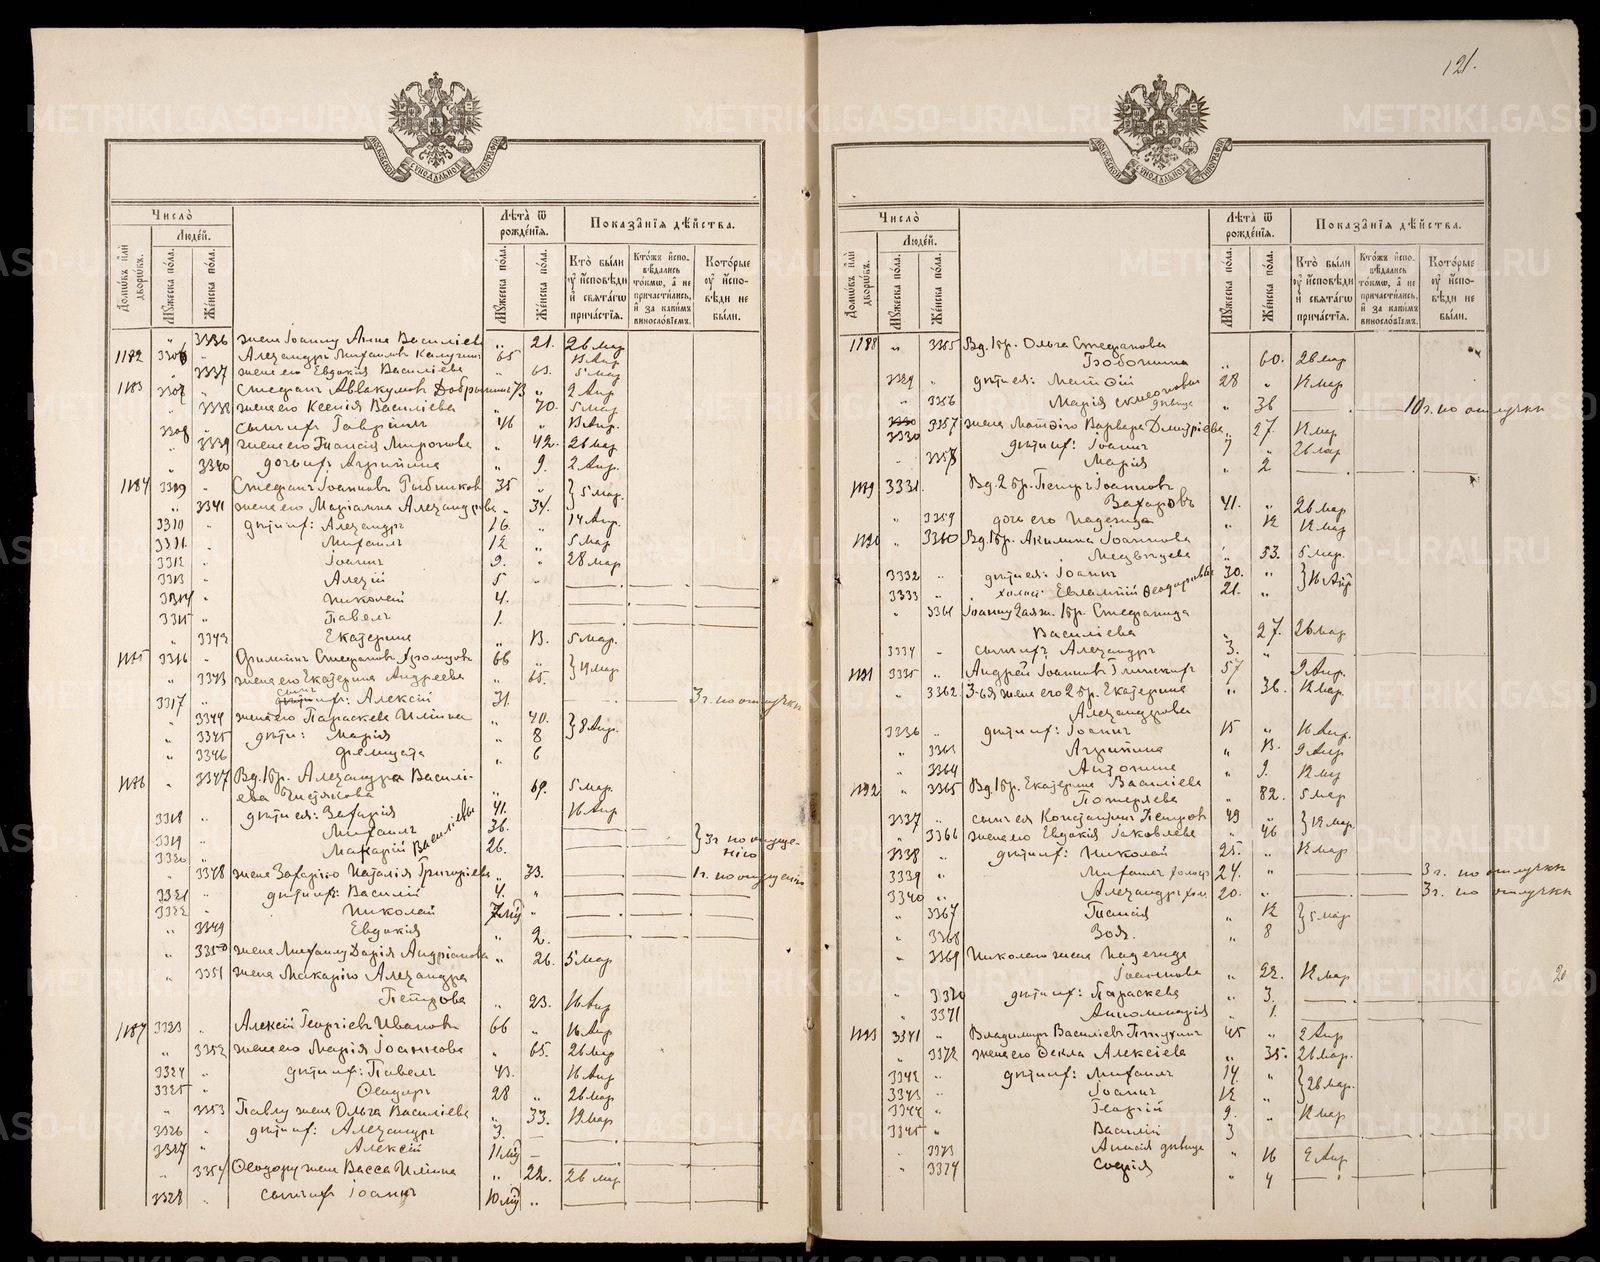 121.
МОСКОВСКОЙ СѴНОДАЛЬНОЙ ТИПОГРАФІИ
Число̀
Людей.
Домѡвъ и҆лѝ дворѡвъ.
Мꙋжеска по́ла.
Же́нска по́ла.
Лѣта̀ ѿ рожде́нїѧ.
Мꙋжеска по́ла.
Же́нска по́ла.
Показа̑нїѧ дѣ́йства.
Кто̀ бы́ли ᲂу҆ и҆́сповѣди и҆ свѧта́гѡ прича́стїѧ.
Кто́жъ и҆спо-вѣ́дались то́кмѡ, а҆ не причасти́лись, и҆ за каки́мъ виносло́вїемъ.
Кото́рые ᲂу҆ и҆́спо-вѣди не бы́ли.
3336 жена Іоанну Анна Васильев „ 21. 26 мар
1182 3306 Александръ Михаиловъ Калугинъ 65 13 Апр
3337 жена его Евдокія Василіева „ 63. 5 мар
1183 3307 Стефанъ Аввакумовъ Добрынинъ 73 „ 2 Апр
3338 жена его Ксенія Василіева „ 70. 5 мар
3308 сынъ их Гавріилъ 46 „ 13 Апр.
3339 жена его Таисія Миронова „ 42. 26 мар
3340 дочь их: Агрипина „ 9. 2 Апр.
1184 3309 Стефанъ Іоанновъ Рыбниковъ 35 „ 5 мар.
3341 жена его Маріамна Александрова „ 34.
3310 дѣти их: Александръ 16 „ 14 Апр.
3311 Михаилъ 12 „ 5 мар
3312 Іоаннъ 9. „ 28 мар
3313 Алексій 5 „
3314 Николай 4.
3315 Павелъ 1.
3342 Екатерина „ 13. 5 мар.
1185 3316 Филиппъ Стефановъ Хромцовъ 66 „ 19 мар
3343 жена его Екатерина Андреева „ 65.
3317 сынъ их: Алексій 31. 3 г. по отлучки
3344 жена его Параскева Иліина „ 40. 8 Апр.
3345 дѣти: Марія „ 8
3346 „ 6
1186 3347 Вд. 1 бр. Александра Василі-
ева Чистякова „ 69. 5 мар.
3318 дѣти ея: Захарія 41. 16 Апр
3319 Михаилъ 36. 3 г. по опуще-
3320 Макарій Василіевы 26. нію
3348 жена Захарію Наталія Григоріева „ 33. 1 г. по опущенію
3321 дѣти их: Василій 4. „
3322 Николай 7 мѣ „
3349 Евдокія „ 2.
3350 жена Михаилу Дарія Андріанова „ 26. 5 мар
3351 жена Макарію Александра
Петрова „ 23. 16 Апр
1187 3323 Алексій Георгіевъ Ивановъ 66 „ 16 Апр
3352 жена его Марія Іоаннова „ 65. 26 мар
3324 дѣти их: Павелъ 43. 16 Апр
3325 Ѳеодоръ 28 „ 26 мар
3353 Павлу жена Ольга Василіева „ 33. 12 мар
3326 дѣти их: Александръ 3.
3327 Алексій 11 мѣ
3354 Ѳеодору жена Васса Иліина „ 22. 26 мар
3328 сынъ их Іоаннъ 10 мѣ „
Число̀
Людей.
Домѡвъ и҆лѝ дворѡвъ.
Мꙋжеска по́ла.
Же́нска по́ла.
Лѣта̀ ѿ рожде́нїѧ.
Мꙋжеска по́ла.
Же́нска по́ла.
Показа̑нїѧ дѣ́йства.
Кто̀ бы́ли ᲂу҆ и҆́сповѣди и҆ свѧта́гѡ прича́стїѧ.
Кто́жъ и҆спо-вѣ́дались то́кмѡ, а҆ не причасти́лись, и҆ за каки́мъ виносло́вїемъ.
Кото́рые ᲂу҆ и҆́спо-вѣди не бы́ли.
1188 „ 3355 Вд. 1 бр. Ольга Стефанова
„ 60. 26 мар
3329 дѣти ея: Матѳій 28 „ 12 мар
3356 Марія Симеоновы дѣвица „ 36 10 г. по отлучки
3357 жена Матѳію Варвара Димитріева „ 27. 12 мар
3330 дѣти их: Іоаннъ 7 „ 26 мар
3358 Марія „ 2
1189 3331 Вд. 2 бр. Петръ Іоанновъ
Захаровъ 41. „ 26 мар
3359 дочь его Надежда „ 12 12 мар
1190 3360 Вд. 1 бр. Акилина Іоаннова
Медвѣдева „ 53. 5 мар.
3332 дѣти ея: Іоаннъ 30. „ 16 Апр
3333 холост Евлампій Ѳеодоровы 21. „
3361 Іоанну жена 1 бр. Стефанида
Василіева „ 27. 26 мар
3334 сынъ их Александръ 3. „
1191 3335 Андрей Іоанновъ Глинскихъ 57 „ 9 Апр.
3362 3-ья жена его 2 бр. Екатерина „ 36. 12 мар.
Александрова
3336 дѣти их: Іоаннъ 15 „ 16 Апр.
3363 Агрипина „ 13. 9 Апр
3364 Антонина „ 9. 12 мар
1192 3365 Вд. 1 бр. Екатерина Василіева
Потеряева „ 82. 5 мар
3337 сынъ ея Константинъ Петровъ 49 „ 19 мар.
3366 жена его Евдокія Іаковлева „ 46
3338 дѣти их: Николай 25. „ 12 мар
3339 Михаилъ холост 24. „ 3 г. по отлучки
3340 Александръ хол 20. „ 3 г. по отлучки
3367 Таисія „ 12 5 мар
3368 Зоя. „ 8
3369 Николаю жена Надежда
Іоаннова „ 22. 12 мар
3370 дѣти их: Параскева „ 3.
3371 Аполлинарія „ 1.
1193 3341 Владимиръ Василіевъ Пѣтухинъ 45 „ 2 Апр
3372 жена его Ѳекла Алексіева „ 35. 26 мар.
3342 дѣти их: Михаилъ 14. „ 26 мар.
3343 Іоаннъ 12 „
3344 Георгій 9. „ 12 мар
3345 Василій 3
3373 Анисія дѣвица „ 16 2 Апр
3374 Софія „ 4